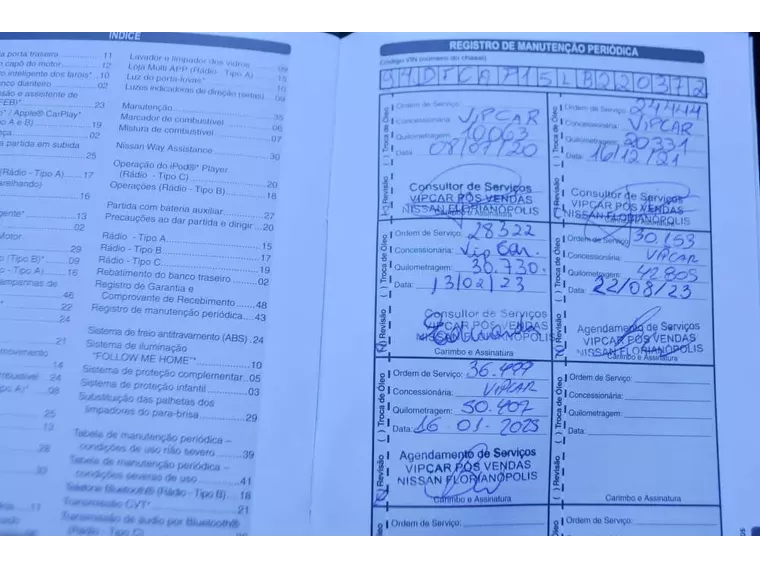 ÍNDICE
a porta traseira ........ 11
capô do motor ........ 12
inteligente dos faróis* .. 10
anco dianteiro ........ 02
são e assistente de
FEB)* ........ 23
* / Apple® CarPlay*
A e B) ........ 19
ça ........ 02
a partida em subida
........ 25
(Rádio - Tipo A) ..... 17
arelhando)
........ 16
gente* ........ 13
........ 02
Motor
........ 29
(Tipo B)* ........ 09
- Tipo A) ........ 16
ampanhas de
........ 46
........ 22
........ 24
........ 21
movimento
........ 14
mbustível .. 24
po A)* ........ 08
........ 25
........ 13
........ 28
........ 30
....11
Lavador e limpador dos vidros ..... 09
Loja Multi APP (Rádio - Tipo A) ..... 15
Luz do porta-luvas* ........ 10
Luzes indicadoras de direção (setas) ... 09
Manutenção ........ 35
Marcador de combustível ........ 06
Mistura de combustível ........ 07
Nissan Way Assistance ........ 30
Operação do iPod®* Player
(Rádio - Tipo C) ........ 20
Operações (Rádio - Tipo B) ........ 18
Partida com bateria auxiliar ........ 27
Precauções ao dar partida e dirigir .. 20
Rádio - Tipo A ........ 15
Rádio - Tipo B ........ 17
Rádio - Tipo C ........ 19
Rebatimento do banco traseiro ..... 02
Registro de Garantia e
Comprovante de Recebimento .. 48
Registro de manutenção periódica .. 43
Sistema de freio antitravamento (ABS) . 24
Sistema de iluminação
"FOLLOW ME HOME"* ........ 10
Sistema de proteção complementar .. 05
Sistema de proteção infantil ........ 03
Substituição das palhetas dos
limpadores do para-brisa ........ 29
Tabela de manutenção periódica –
condições de uso não severo ..... 39
Tabela de manutenção periódica –
condições severas de uso ........ 41
Telefone Bluetooth® (Rádio - Tipo B) .. 18
Transmissão CVT* ........ 21
Transmissão de áudio por Bluetooth®
(Rádio - Tipo C)
REGISTRO DE MANUTENÇÃO PERIÓDICA
Código VIN (número do chassi)
94DFCAP15LB220372
( ) Revisão ( ) Troca de Óleo
Ordem de Serviço:
Concessionária: VIPCAR
Quilometragem: 10063
Data: 08/07/20
Consultor de Serviços
VIPCAR PÓS VENDAS
NISSAN FLORIANÓPOLIS
Carimbo e Assinatura
( ) Revisão ( ) Troca de Óleo
Ordem de Serviço: 24444
Concessionária: VIPCAR
Quilometragem: 20331
Data: 16/12/21
Consultor de Serviços
VIPCAR PÓS VENDAS
NISSAN FLORIANÓPOLIS
Carimbo e Assinatura
( ) Revisão ( ) Troca de Óleo
Ordem de Serviço: 28322
Concessionária: Vip Car.
Quilometragem: 30.730.
Data: 13/02/23
Consultor de Serviços
VIPCAR PÓS VENDAS
NISSAN FLORIANÓPOLIS
Carimbo e Assinatura
( ) Revisão ( ) Troca de Óleo
Ordem de Serviço: 30.153
Concessionária: VIPCAR
Quilometragem: 42.805
Data: 22/08/23
Agendamento de Serviços
VIPCAR PÓS VENDAS
NISSAN FLORIANÓPOLIS
Carimbo e Assinatura
( ) Revisão ( ) Troca de Óleo
Ordem de Serviço: 36.499
Concessionária: VIPCAR
Quilometragem: 50.407
Data: 16-01-2025
Agendamento de Serviços
VIPCAR PÓS VENDAS
NISSAN FLORIANÓPOLIS
Carimbo e Assinatura
( ) Revisão ( ) Troca de Óleo
Ordem de Serviço:
Concessionária:
Quilometragem:
Data:
Carimbo e Assinatura
Ordem de Serviço:
Concessionária:
Ordem de Serviço:
Concessionária: